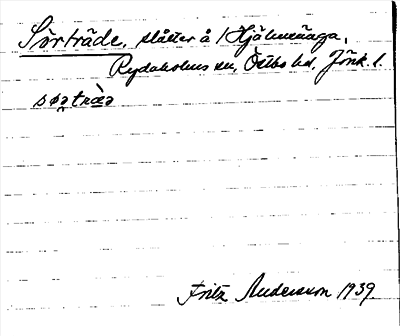 Sörträde, slåtter å 1 Hjälmenäga,
Rydaholms sn, Östbo hd. Jönk. l.
Fritz Andersson 1939